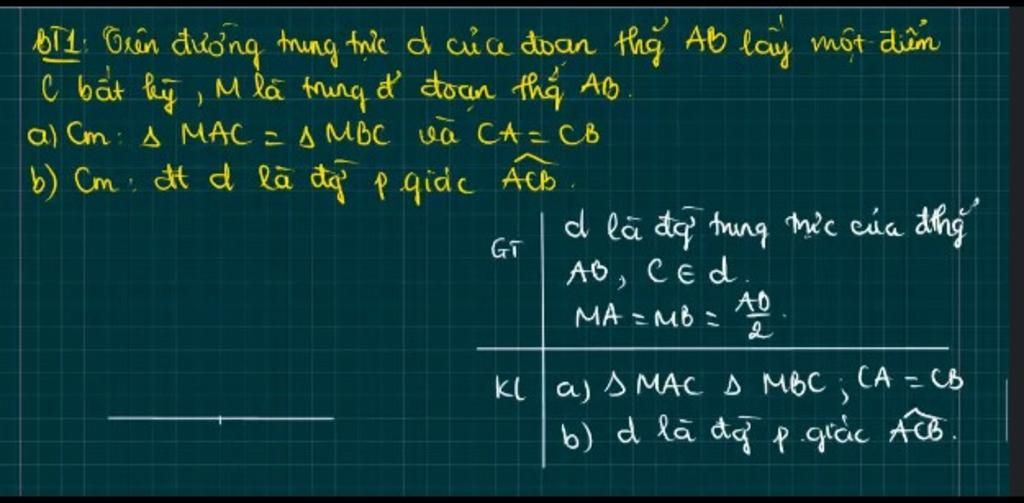 BT1: Trên đường trung trực d của đoạn thg̉ AB lấy một điểm
C bất kỳ, M là trung đ' đoạn thg̉ AB.
a) Cm: Δ MAC = Δ MBC và CA = CB
b) Cm: đt d là đg̀ p.giác ACB.
GT
d là đg̀ trung trực của đthg̉
AB, C ∈ d.
MA = MB = AB/2.
KL
a) Δ MAC Δ MBC; CA = CB
b) d là đg̀ p.giác ACB.